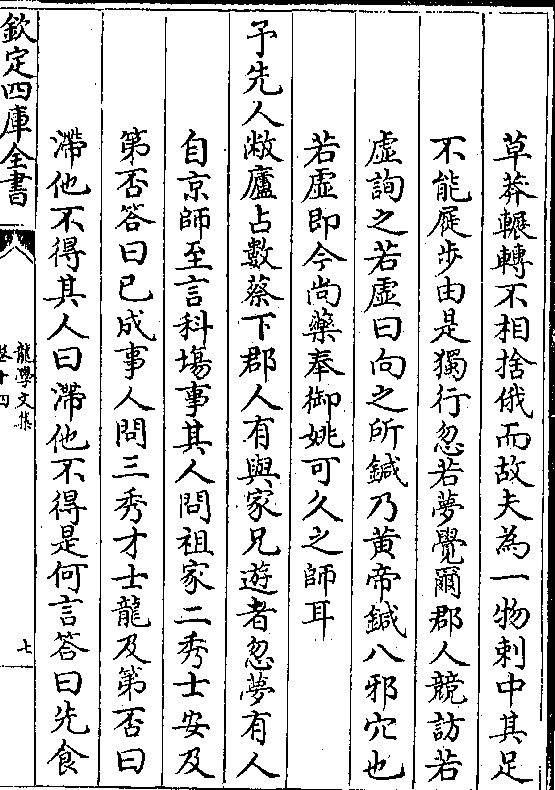 草莽輾轉不相捨俄而故夫為一物刺中其足
不能屣步由是獨行忽若夢覺爾郡人競訪若
虛詢之若虛曰向之所鍼乃黄帝鍼八邪穴也
若虛即今尚藥奉御姚可久之師耳
予先人敝廬占數蔡下郡人有與家兄遊者忽夢有人
自京師至言科塲事其人問祖家二秀士安及
第否答曰已成事人問三秀才士龍及第否曰
滯他不得其人曰滯他不得是何言答曰先食
欽定四庫全書
龍學文集
卷十四
七